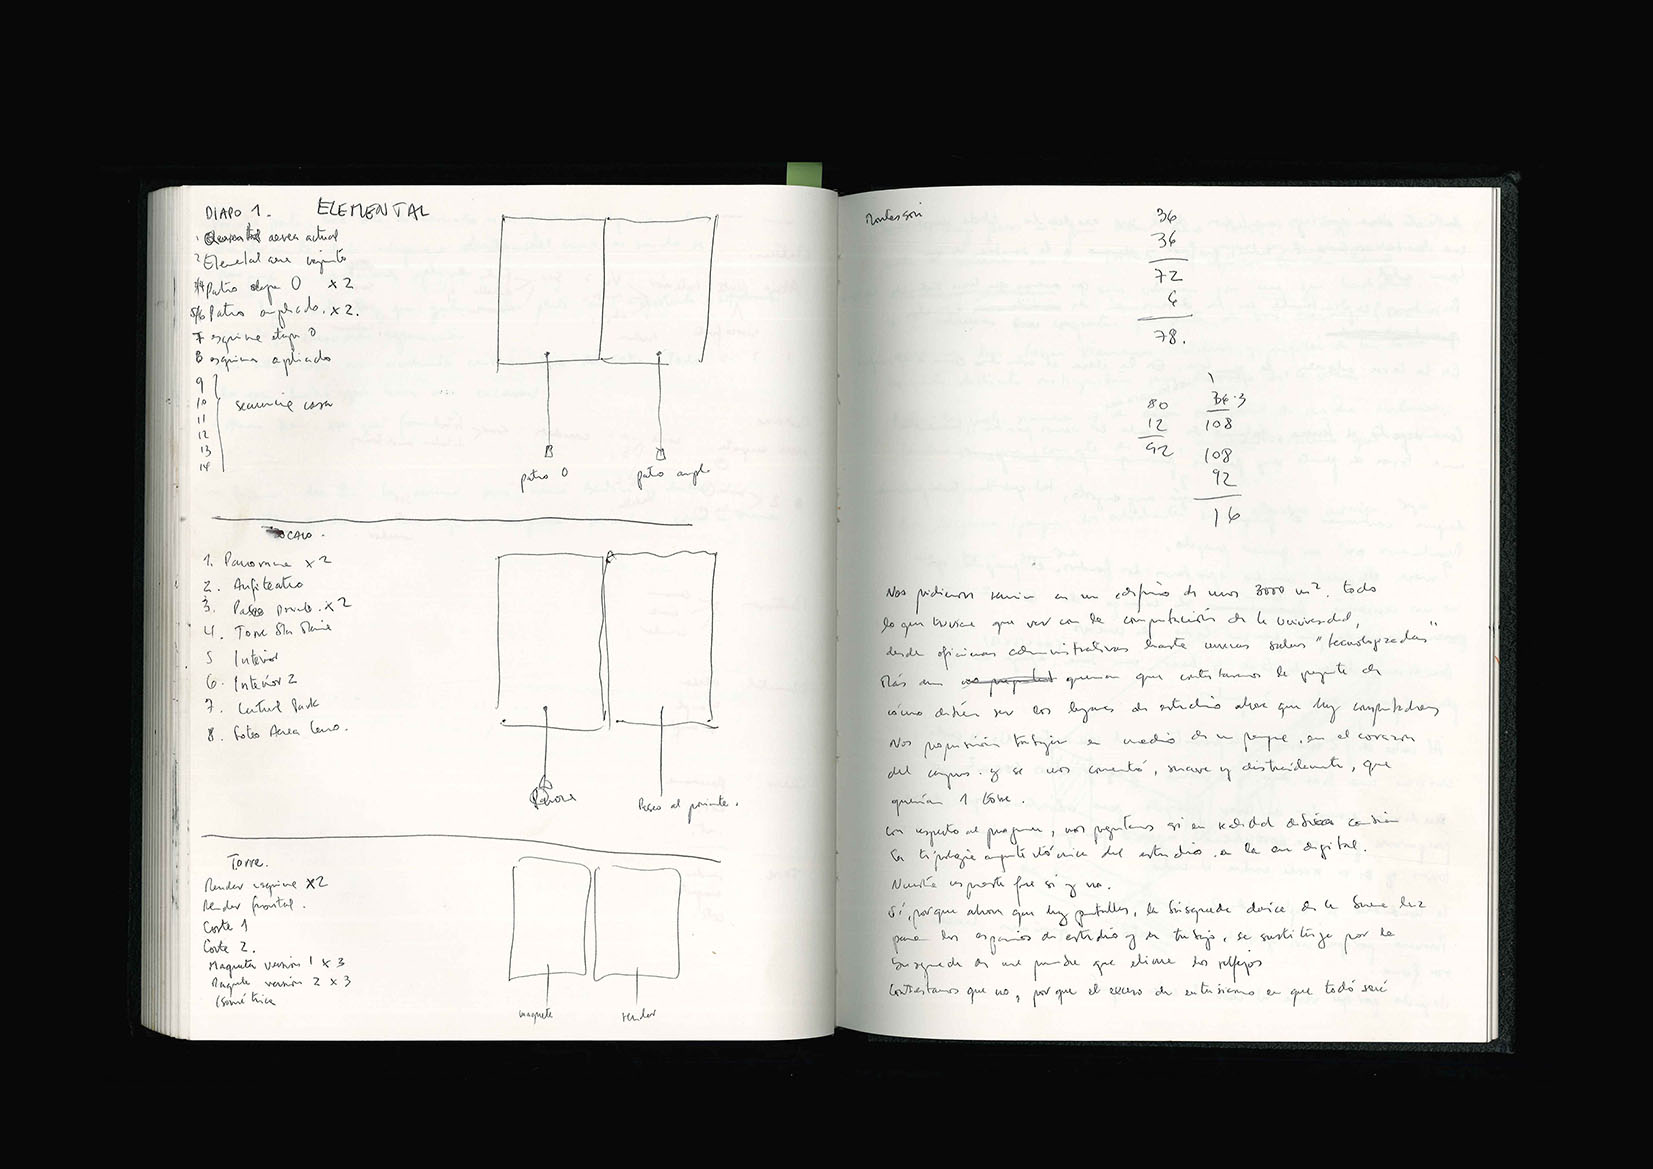 DIAPO 1. ELEMENTAL
1 aerea actual
2 Elemental aerea conjunto
3/4 Patio etapa 0 x 2
5/6 Patio ampliado. x 2.
7 esquina etapa 0
8 esquina ampliado
9
10 secuencia casa
11
12
13
14
patio 0 patio ampl.
1. Panorama x 2
2. Anfiteatro
3. Paseo x 2
4. Torre
5 Interior
6. Interior 2
7. Central Park
8. Fotos Aerea
Paseo al poniente.
Torre.
Render esquina x 2
Render frontal.
Corte 1
Corte 2.
Maqueta version 1 x 3
Maqueta version 2 x 3
Isométrica
maqueta render
Montessori
36
36
72
6
78.
80 36·3
12 108
92 108
92
16
Nos pidieron reunir en un edificio de unos 3000 m². todo
lo que tuviese que ver con la computación de la universidad,
desde oficinas administrativas hasta unas salas "tecnologizadas"
Más aun querian que contestaramos la pregunta de
cómo debían ser los lugares de estudio ahora que hay computadores
Nos propusieron trabajar en medio de un parque, en el corazon
del campus. y se nos comentó, suave y distraidamente, que
querían 1 torre.
con respecto al programa, nos preguntamos si en realidad cambiar
la tipología arquitectónica del estudio a la era digital.
Nuestra respuesta fue sí y no.
Sí, porque ahora que hay pantallas, la búsqueda de la buena luz
para los espacios de estudio y de trabajo, se sustituye por la
búsqueda de una penumbra que elimine los reflejos
Contestamos que no, porque el exceso de entusiasmo en que todo será